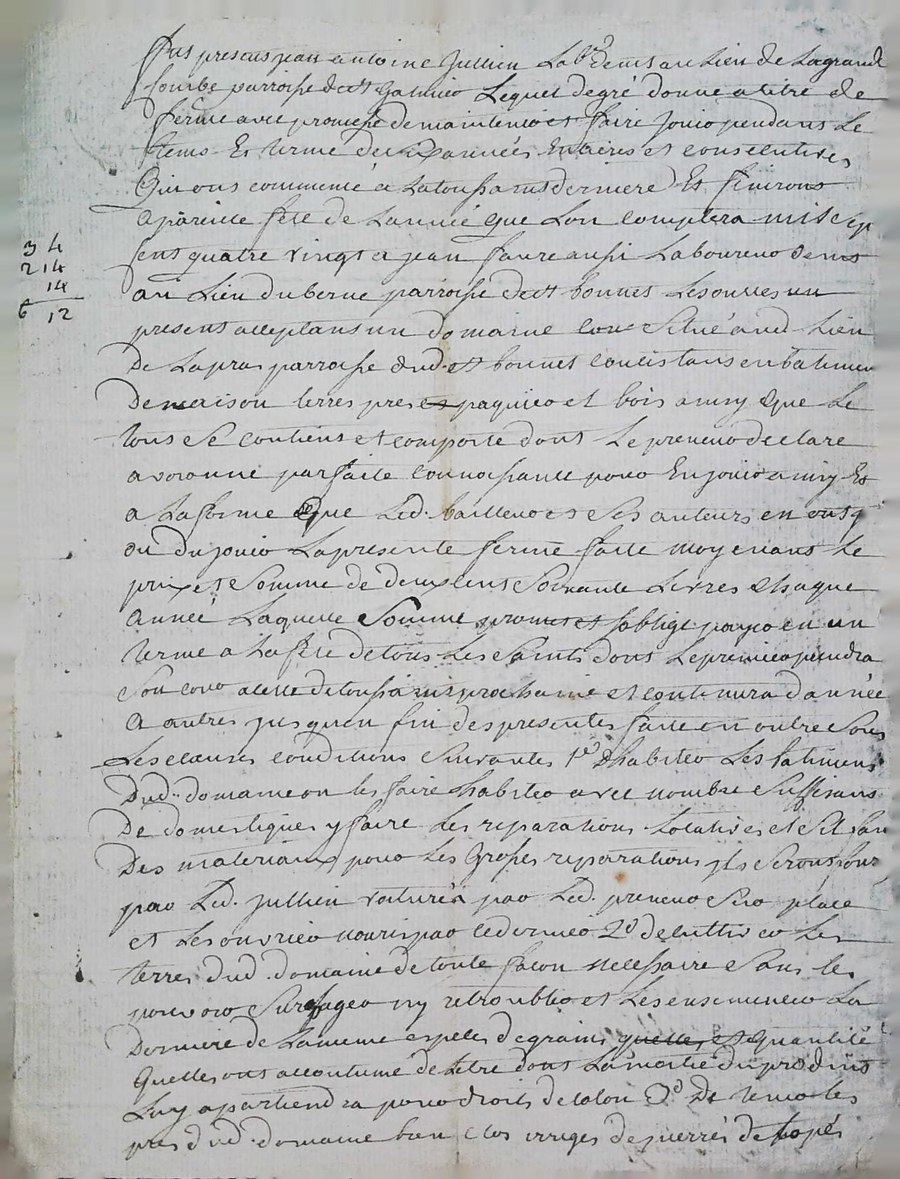 fut present jean antoine Jullien Lab.r dem.t au Lieu de Lagrand
fourbe parroisse de st Galmier Lequel degré donne a titre de
ferme avec promesse de maintenir et faire Jouir pendant Le
tems Et terme de années Entieres et consecutives
Qui ont commencé a Latoussaint derniere Et finiront
a pareille fete de Lannée que Lon comptera mil sep
cent quatre vingt a jean faure aussi Laboureur dem.t
au Lieu duberne parroisse de st bonnet Lesoulles un
present acceptant un domaine Con Situé aud. Lieu
De Lapra parroisse dud. st bonnet consistant en batimen
De maison terres pres et paquier et bois ainsy que Le
tout Se contient et comporte dont Le preneur declare
avoir une parfaite connoissance pour En jouir ainsy Et
a La forme que Led. bailleur et Ses auteurs en ont j
ou du jouir La presente ferme faite moyenant Le
prix et Somme de deux cent Soixante Livres chaque
année Laquelle Somme promet et soblige payer en un
terme a La fete de tous Les Saints dont Le premier prendra
Son cour a celle de toussaint prochaine et continuera dannée
a autre jusquen fin des presentes faite en outre Sous
Les clauses conditions Suivantes 1e dhabiter Les batimens
Dud. domaine ou les faire habiter avec nombre Suffisant
De domestiques y faire Les reparations Locatives et Sil faut
Des materiaux pour Les Grosses reparations ils Seront four
par Led. Jullien voiturés par Led. preneur Sur place
et Les ouvriers nouris par ledernier 2e de cultiver Les
terres dud. domaine de toute facon necessaire Sans les
pouvoir Surchager ny retroubler et Les ensemencer La
Derniere de La meme espece de grains quelles et Quantité
Quelles ont accoutumé detre dont La moitié du produit
Luy apartiendra pour droit de colon 3e De tenir les
pres dud. domaine bien clos purges de pierres de topés
34
214
14
6 12